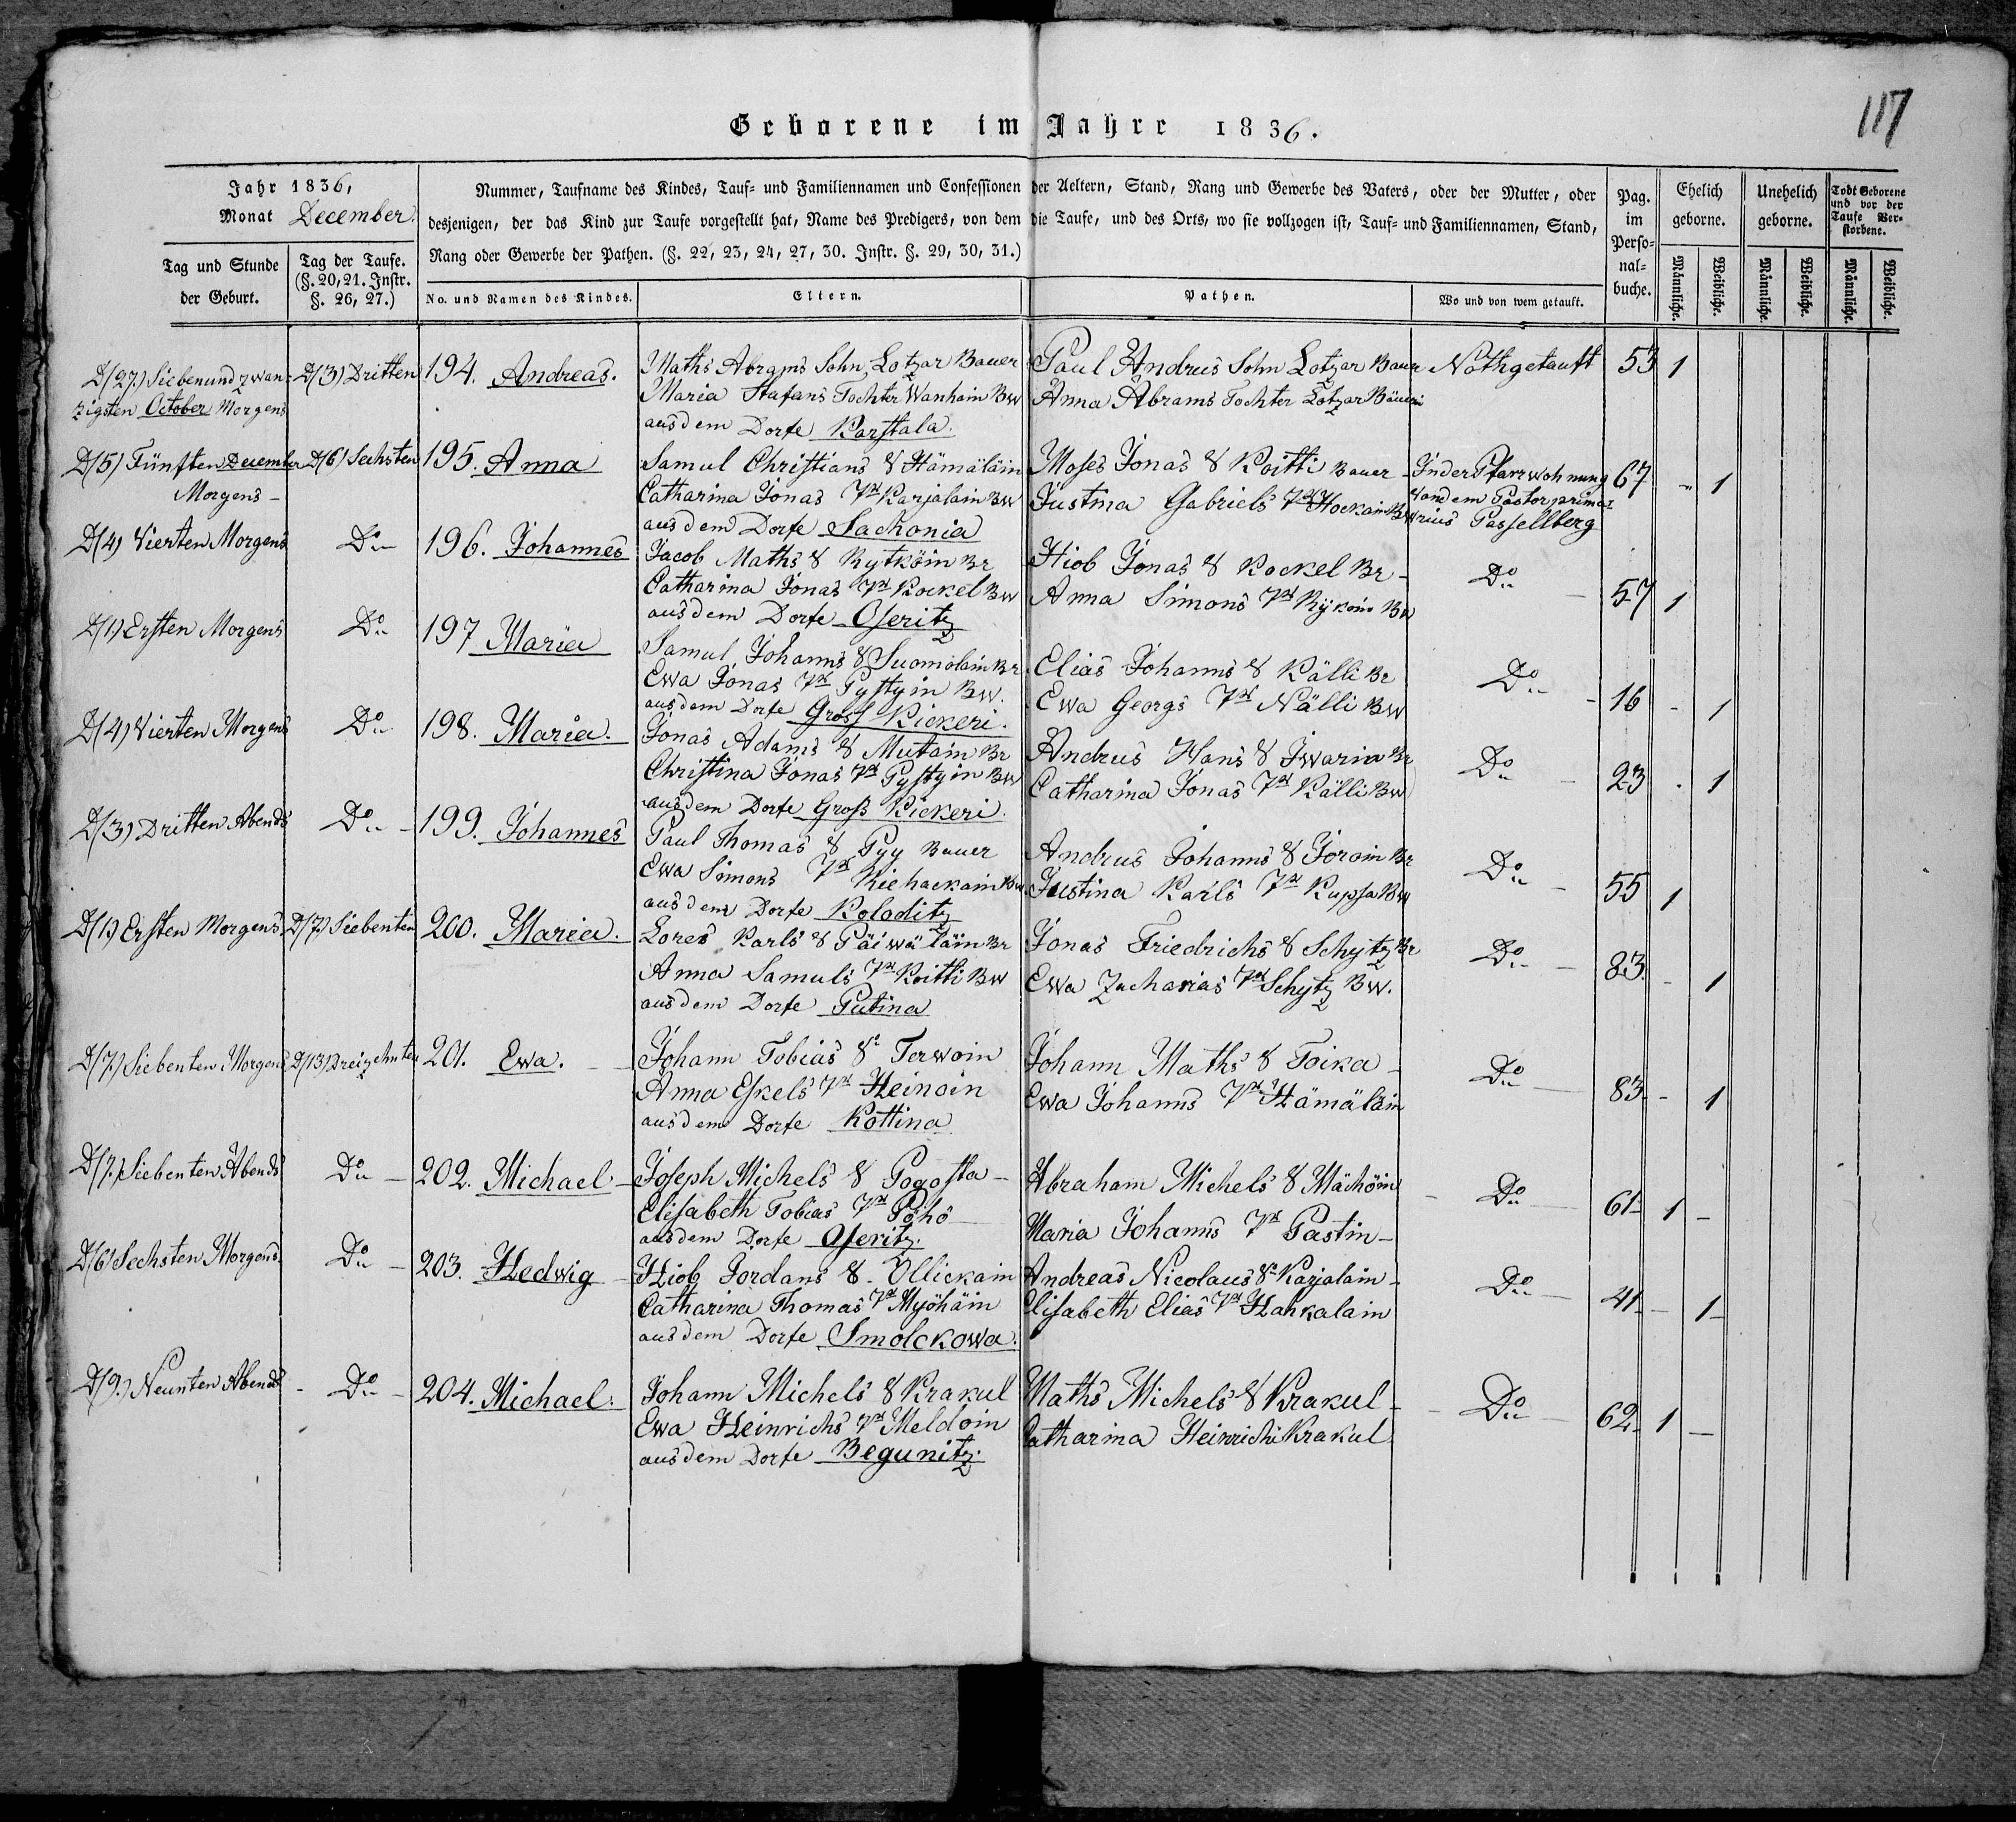 117
Geborene im Jahre 1836.
Jahr 1836,
Monat December.
Nummer, Taufname des Kindes, Tauf- und Familiennamen und Confessionen der Aeltern, Stand, Rang und Gewerbe des Vaters, oder der Mutter, oder
desjenigen, der das Kind zur Taufe vorgestellt hat, Name des Predigers, von dem die Taufe, und des Orts, wo sie vollzogen ist, Tauf- und Familiennamen, Stand,
Rang oder Gewerbe der Pathen. (§. 22, 23, 24, 27, 30. Instr. §. 29, 30, 31.)
Pag.
im
Perso-
nal-
buche.
Ehelich
geborne.
Unehelich
geborne.
Todt Geborene
und vor der
Taufe Ver-
storbene.
Tag und Stunde
der Geburt.
Tag der Taufe.
(§. 20, 21. Instr.
§. 26, 27.)
No. und Namen des Kindes.
Eltern.
Pathen.
Wo und von wem getauft.
Männliche.
Weibliche.
Männliche.
Weibliche.
Männliche.
Weibliche.
D/27.) Siebenundzwan-
zigsten October Morgens
D/3) Dritten
194. Andreas.
Maths Abrams Sohn Lotzar Bauer
Maria Stafans Tochter Wanhain Bw
aus dem Dorfe Karstala.
Paul Andrus Sohn Lotzar Bauer
Anna Abrams Tochter Lotzar Bäueri
Nothgetauft
53 1
D/5) Fünften December
Morgens -
D/6) Sechsten
195. Anna
Samul Christians S Hämäläin
Catharina Jonas Tr Karjalain Bw
aus dem Dorfe Sackonia
Moses Jonas S Koitti Bauer -
Justina Gabriels Tr Hockain Bw
In der Pfarrwohnung
von dem Pastor prima-
rius Passellberg
67 - 1
D/4) Vierten Morgens
Do
196. Johannes
Jacob Maths S Rytköin Br
Catharina Jonas Tr Kockel Bw
aus dem Dorfe Oseritz
Hiob Jonas S Kockel Br -
Anna Simons Tr Ryköin Bw
Do -
57 1
D/1) Ersten Morgens
Do
197 Maria
Samul Johanns S Suomolain Br
Ewa Jonas Tr Pystyin Bw.
aus dem Dorfe Gross Kickeri.
Elias Johanns S Källi Br
Ewa Georgs Tr Nälli Bw
Do -
16 - 1
D/4) Vierten Morgens
Do
198. Maria.
Jonas Adams S Mutain Br
Christina Jonas Tr Pystyin Bw
aus dem Dorfe Gross Kickeri.
Andrus Hans S Iwaria Br
Catharina Jonas Tr Källi Bw
Do -
23 - 1
D/3) Dritten Abends
Do -
199. Johannes
Paul Thomas S Pyy Bauer
Ewa Simons Tr Riehackain Bw
aus dem Dorfe Koloditz
Andrus Johanns S Joroin Br
Justina Karls Tr Kuppsa Bw
Do -
55 1
D/1) Ersten Morgens
D/7.) Siebenten
200. Maria.
Lores Karls S Päiwäläin Br
Anna Samuls Tr Koitti Bw
aus dem Dorfe Putina
Jonas Friedrichs S Schytz Br
Ewa Zacharias Tr Schytz Bw.
Do -
83. - 1
D/7.) Siebenten Morgens
D/13) Dreizehnten
201. Ewa.
Johann Tobias S Terwoin
Anna Eskels Tr Heinoin
aus dem Dorfe Kottina
Johann Maths S Toika -
Ewa Johanns Tr Hämäläin
Do -
83 - 1
D/7.) Siebenten Abends
Do -
202. Michael -
Joseph Michels S Pogosta -
Elisabeth Tobias Tr Pöhö -
aus dem Dorfe Oseritz.
Abraham Michels S Mächöin
Maria Johanns Tr Pastin -
- Do -
61 - 1 -
D/6) Sechsten Morgens
Do -
203. Hedwig -
Hiob Jordans S. Ollickain
Catharina Thomas Tr Myöhäin
aus dem Dorfe Smolckowa.
Andreas Nicolaus S Karjalain -
Elisabeth Elias Tr Hahkalain
Do -
41 - 1 -
D/9.) Neunten Abends -
Do -
204. Michael.
Johann Michels S Krakul
Ewa Heinrichs Tr Meldoin
aus dem Dorfe Begunitz.
Maths Michels S Krakul -
Catharina Heinrichs Krakul
- Do -
62 - 1 -